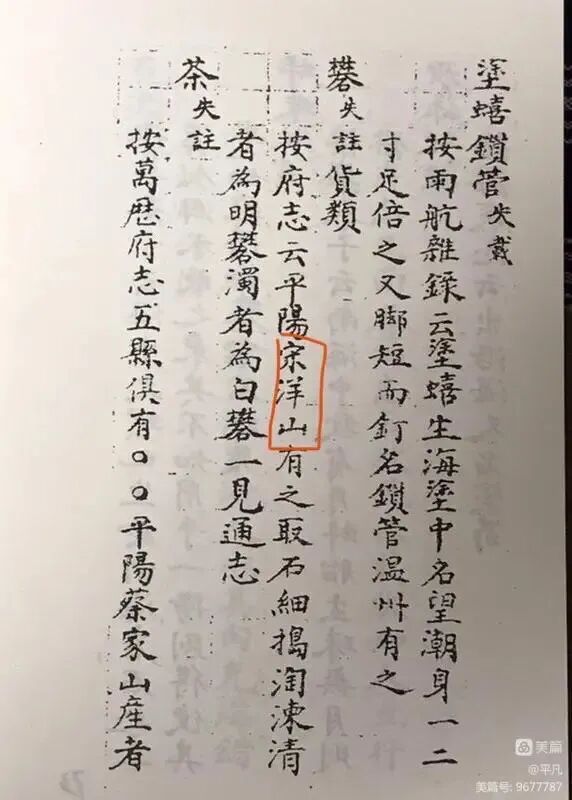 塗蟢鎖管失載
按雨航雜錄云塗蟢生海塗中名望潮身一二
寸足倍之又脚短而釘名鎖管温州有之
礬失註貨類
按府志云平陽宋洋山有之取石細搗淘湅清
者為明礬濁者為白礬一見通志
茶失註
按萬歷府志五縣俱有○○平陽蔡家山産者
美篇
@平凡
美篇号: 9677787